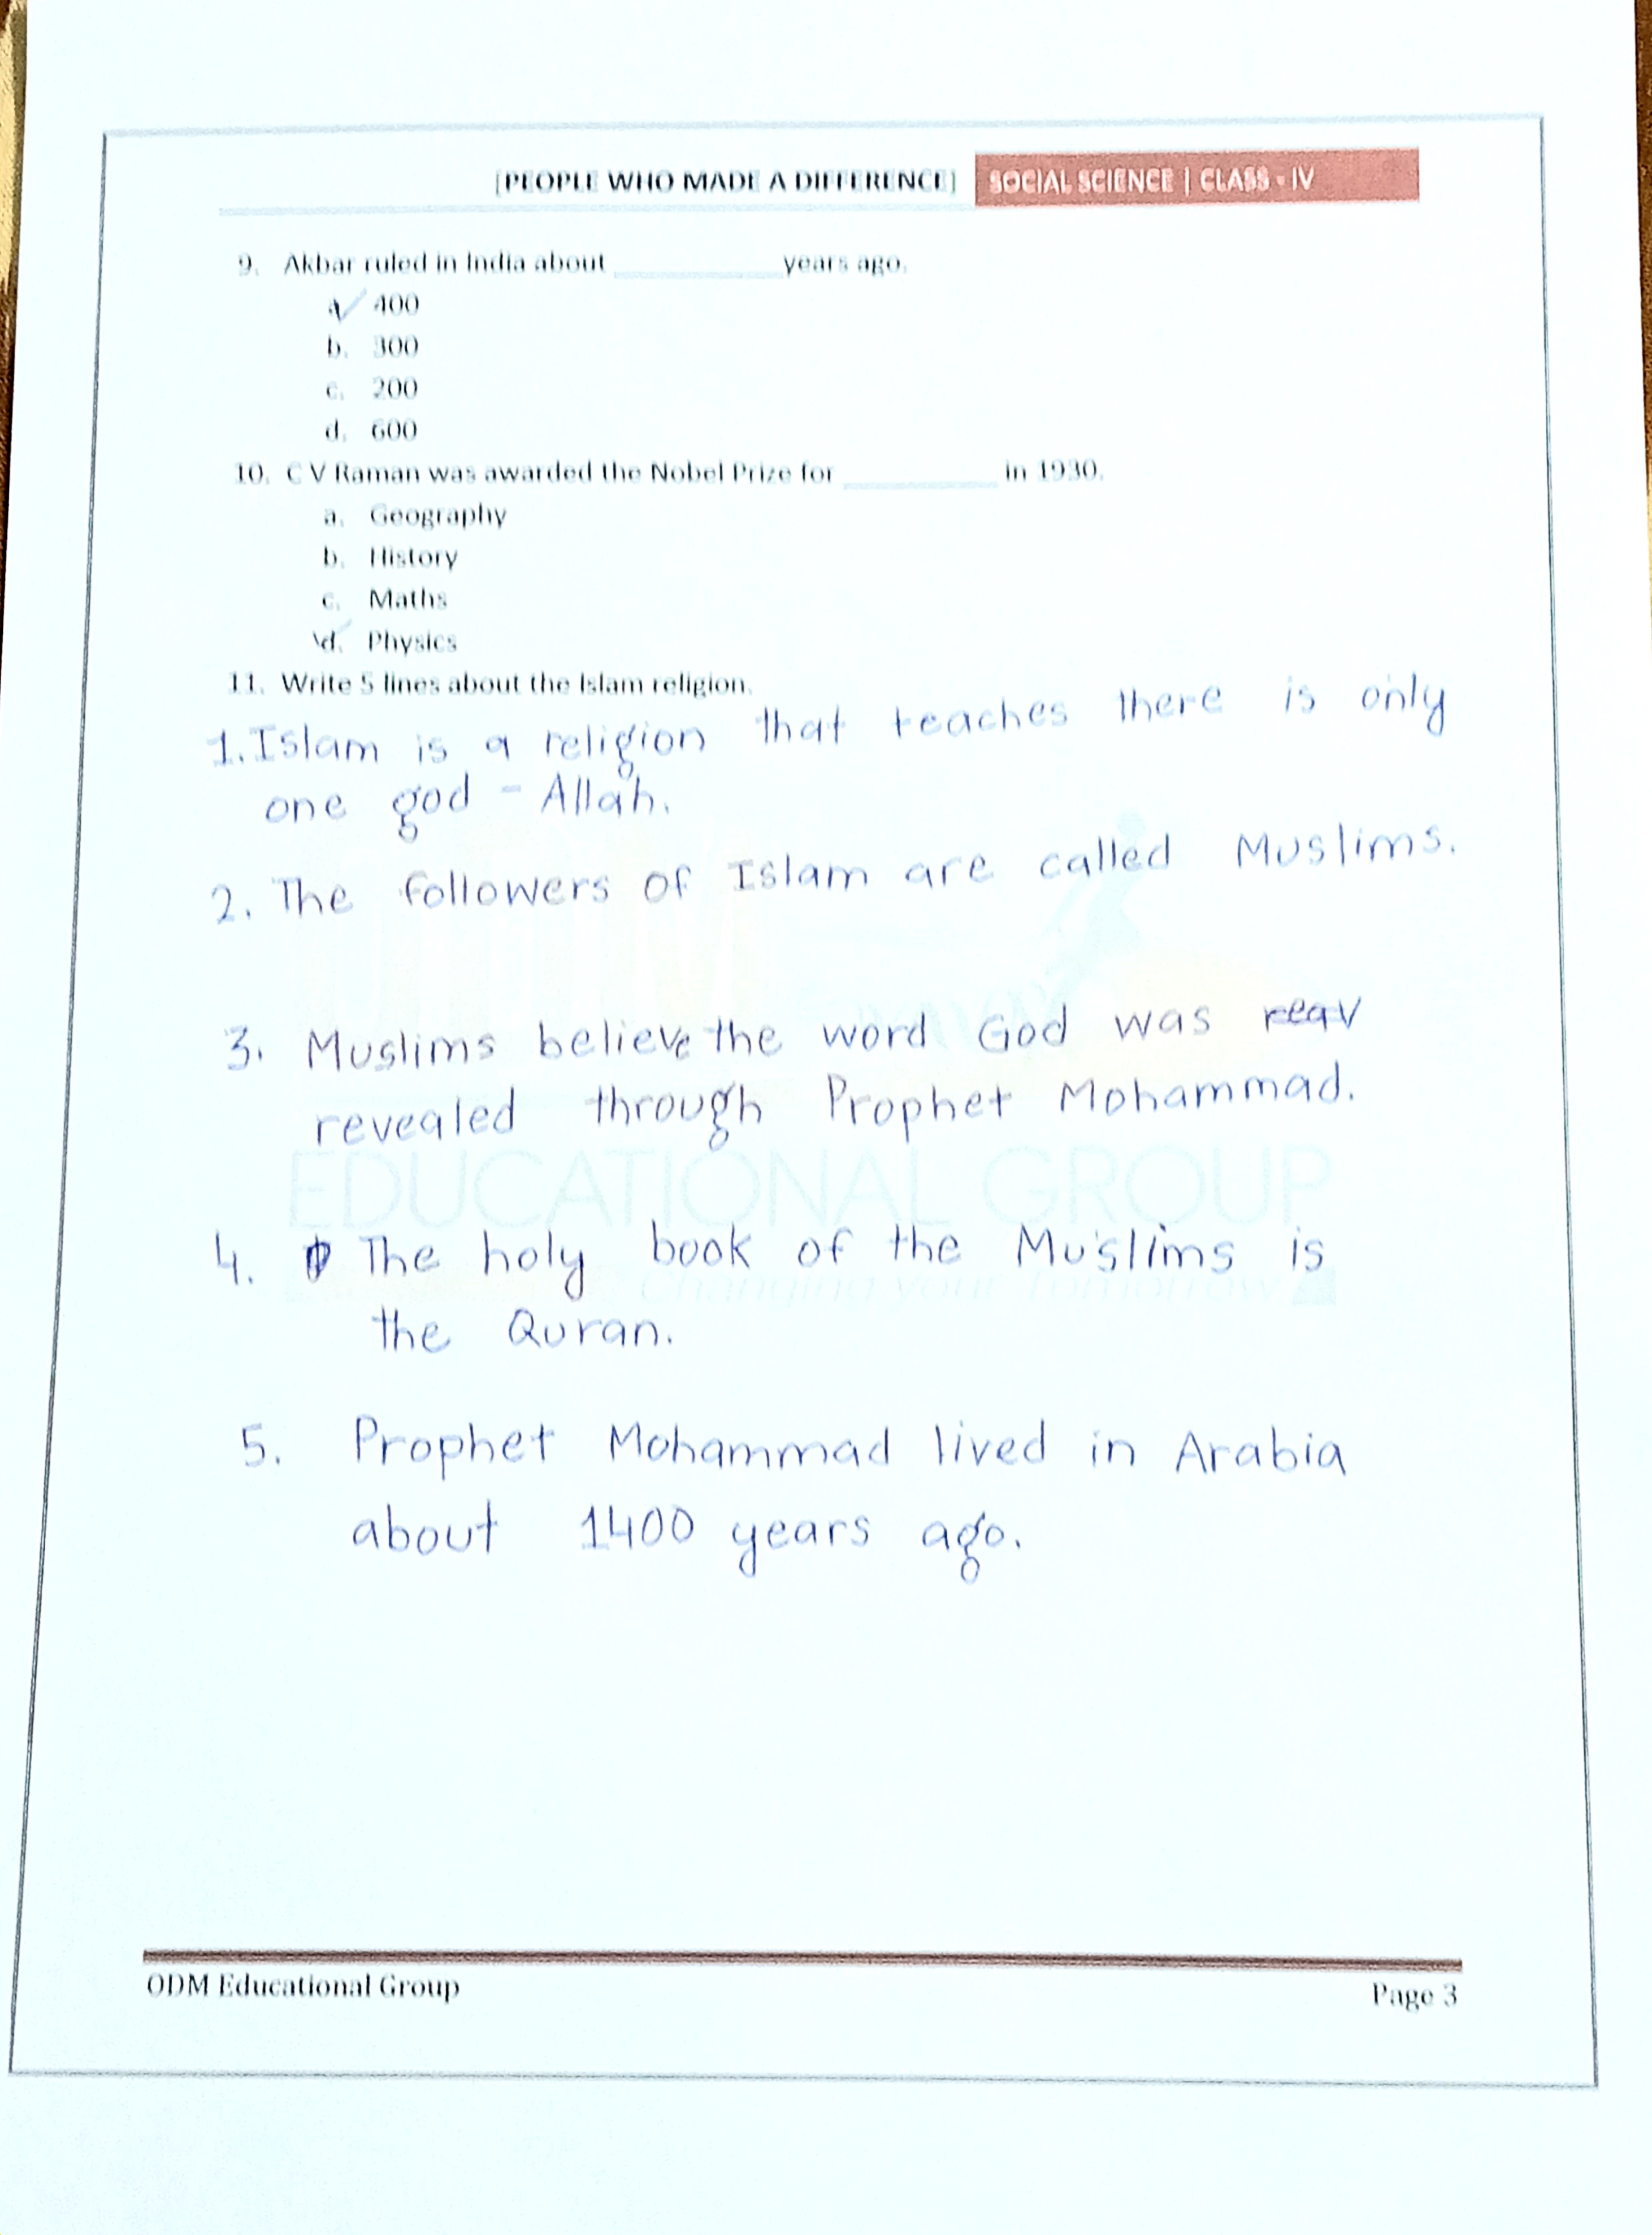 [PEOPLE WHO MADE A DIFFERENCE] SOCIAL SCIENCE | CLASS - IV
9. Akbar ruled in India about __________ years ago.
a. 400
b. 300
c. 200
d. 600
10. C V Raman was awarded the Nobel Prize for __________ in 1930.
a. Geography
b. History
c. Maths
d. Physics
11. Write 5 lines about the Islam religion.
1. Islam is a religion that teaches there is only
one god - Allah.
2. The followers of Islam are called Muslims.
3. Muslims believe the word God was reav
revealed through Prophet Mohammad.
EDUCATIONAL GROUP
4. The holy book of the Muslims is
Changing your Tomorrow
the Quran.
5. Prophet Mohammad lived in Arabia
about 1400 years ago.
ODM Educational Group Page 3